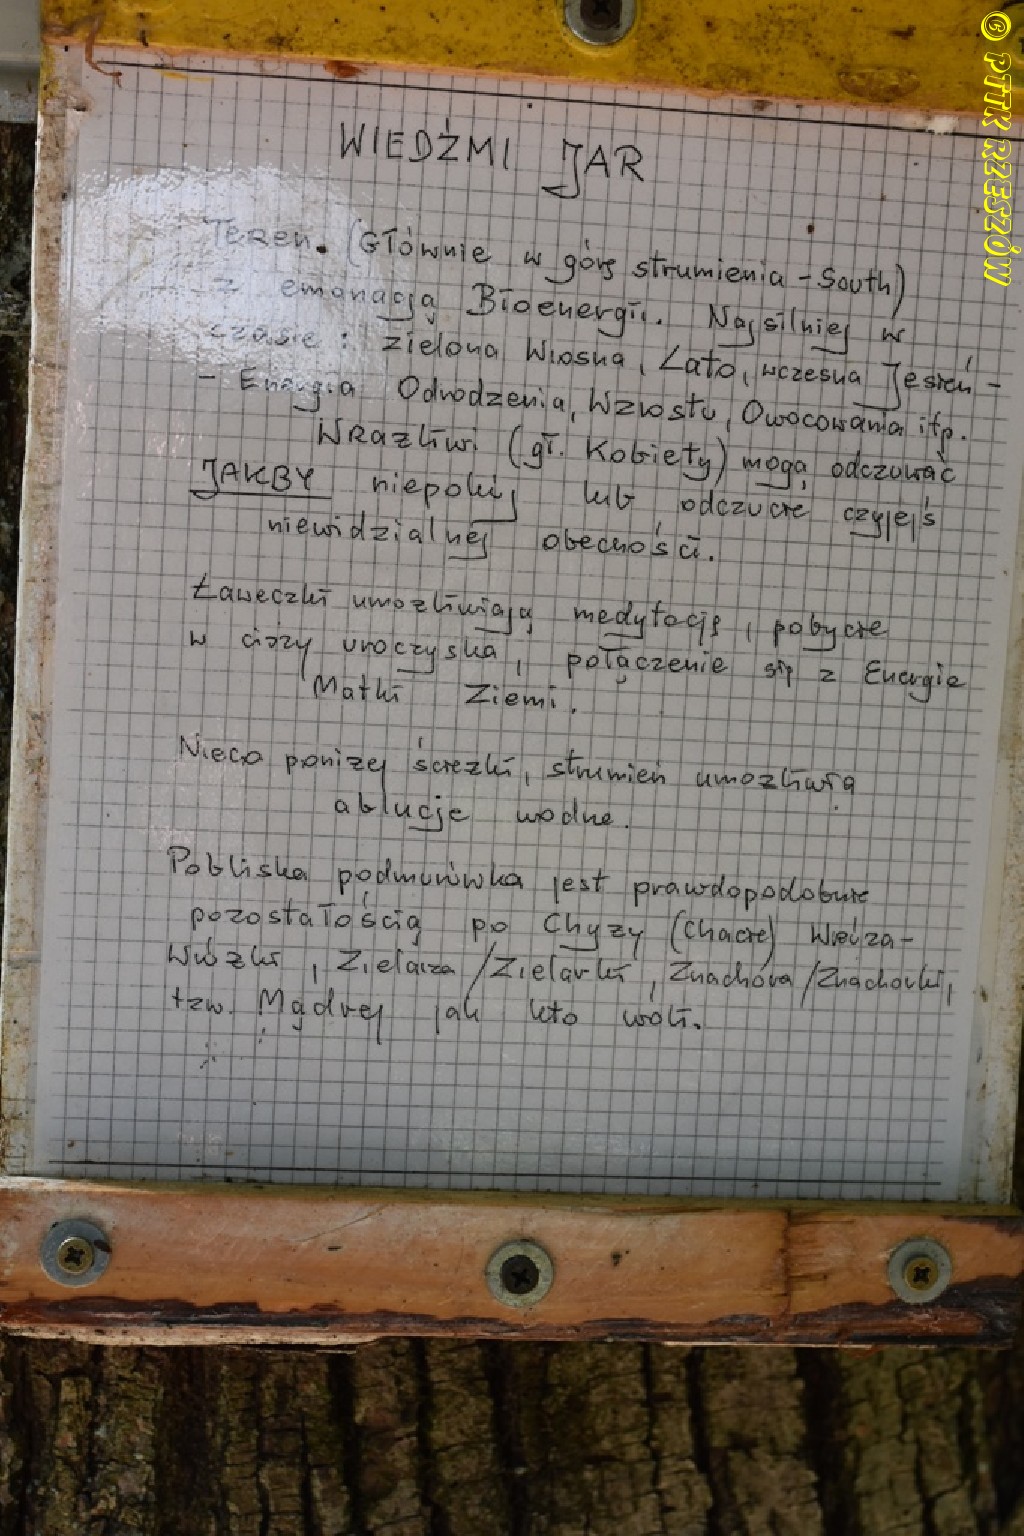 WIEDŹMI JAR
Teren. (Głównie w górę strumienia - South)
z emanacją Bioenergii. Najsilniej w
czasie: zielona Wiosna, Lato, wczesna Jesień -
- Energia Odrodzenia, Wzrostu, Owocowania itp.
Wrażliwi (gł. Kobiety) mogą odczuwać
JAKBY niepokój lub odczucie czyjejś
niewidzialnej obecności.
Ławeczki umożliwiają medytację, pobycie
w ciszy uroczyska, połączenie się z Energią
Matki Ziemi.
Nieco poniżej ścieżki, strumień umożliwia
ablucje wodne.
Pobliska podmurówka jest prawdopodobnie
pozostałością po Chyży (chacie) Wiedźa-
Wróżki, Zielarza/Zielarki, Znachora/Znachorki,
tzw. Mądrej jak kto woli.
© PTTK RZESZÓW